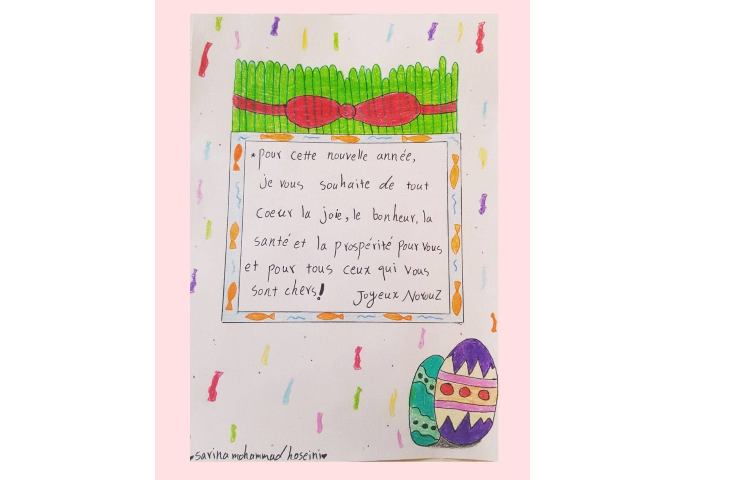 *pour cette nouvelle année,
je vous souhaite de tout
coeur la joie, le bonheur, la
santé et la prospérité pour vous
et pour tous ceux qui vous
sont chers!
Joyeux Norouz
♥sarina mohammad hoseini♥